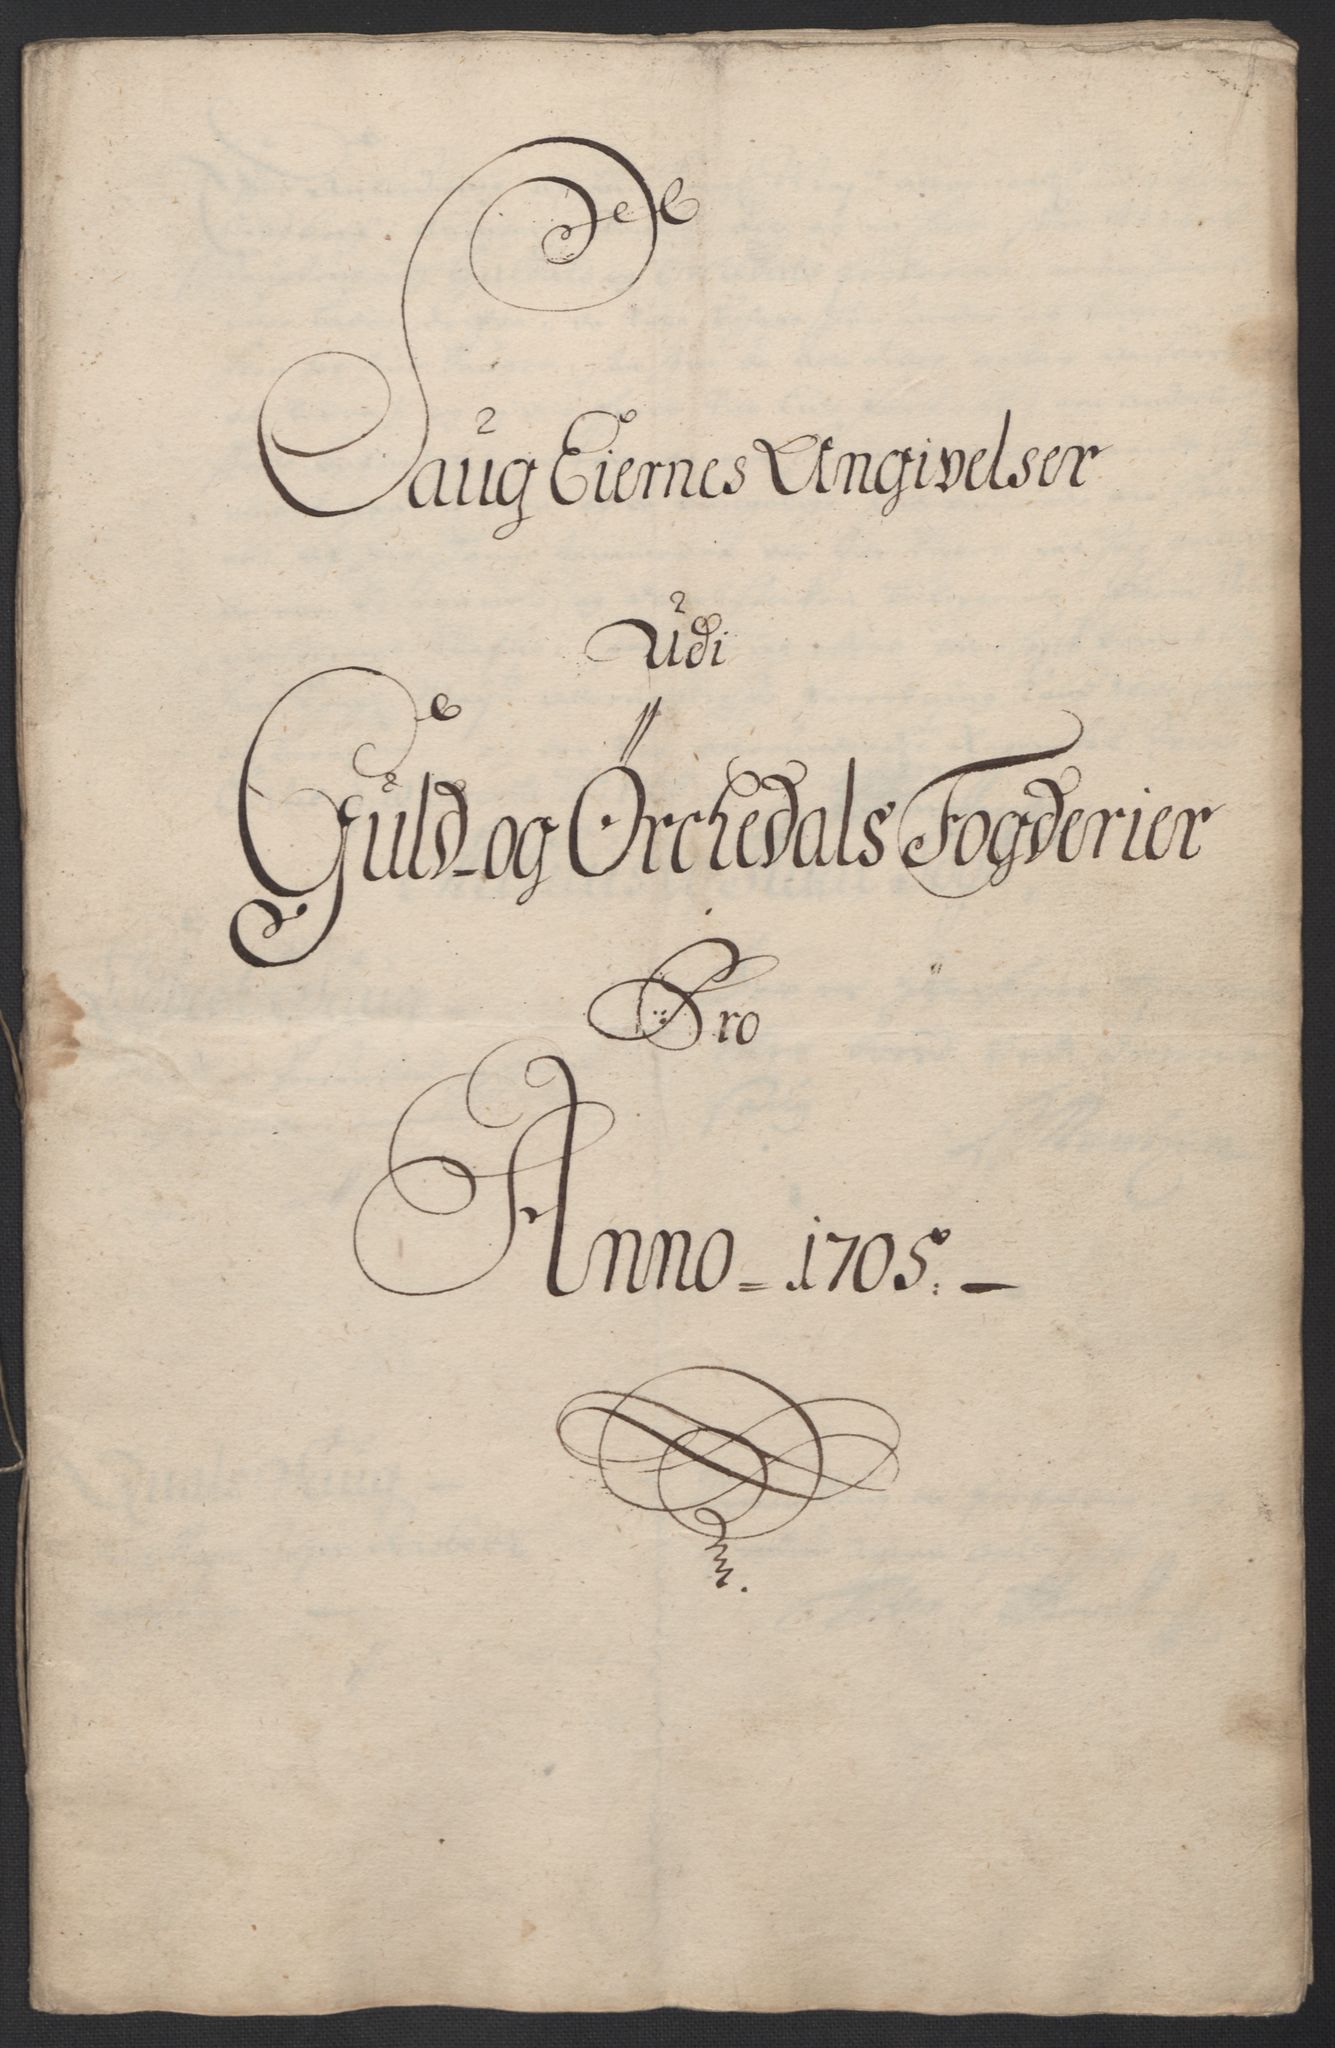 Saug Eiernes Angivelser
Udi
Guld- og Örchedals Fogderier
Pro
Anno = 1705. -